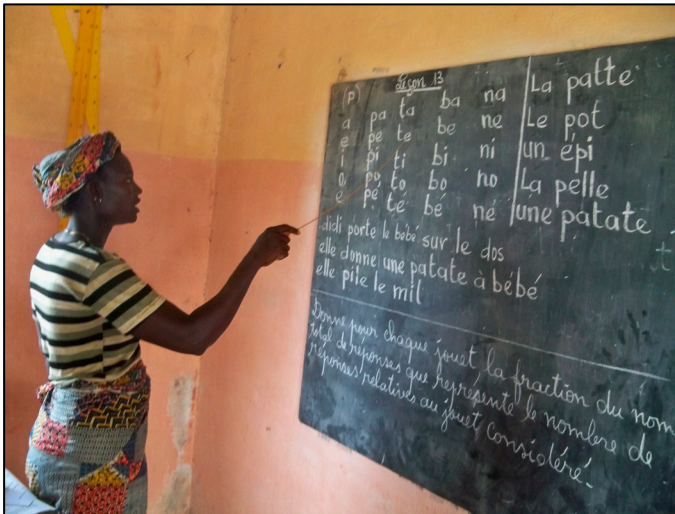 Leçon 13
(p)
a pa ta ba na La patte
e pe te be ne Le pot
i pi ti bi ni un épi
o po to bo no La pelle
é pé té bé né une patate
didi porte le bébé sur le dos
elle donne une patate à bébé
elle pile le mil
Donne pour chaque jouet la fraction du nom
total de réponses que représente le nombre de
réponses relatives au jouet considéré.